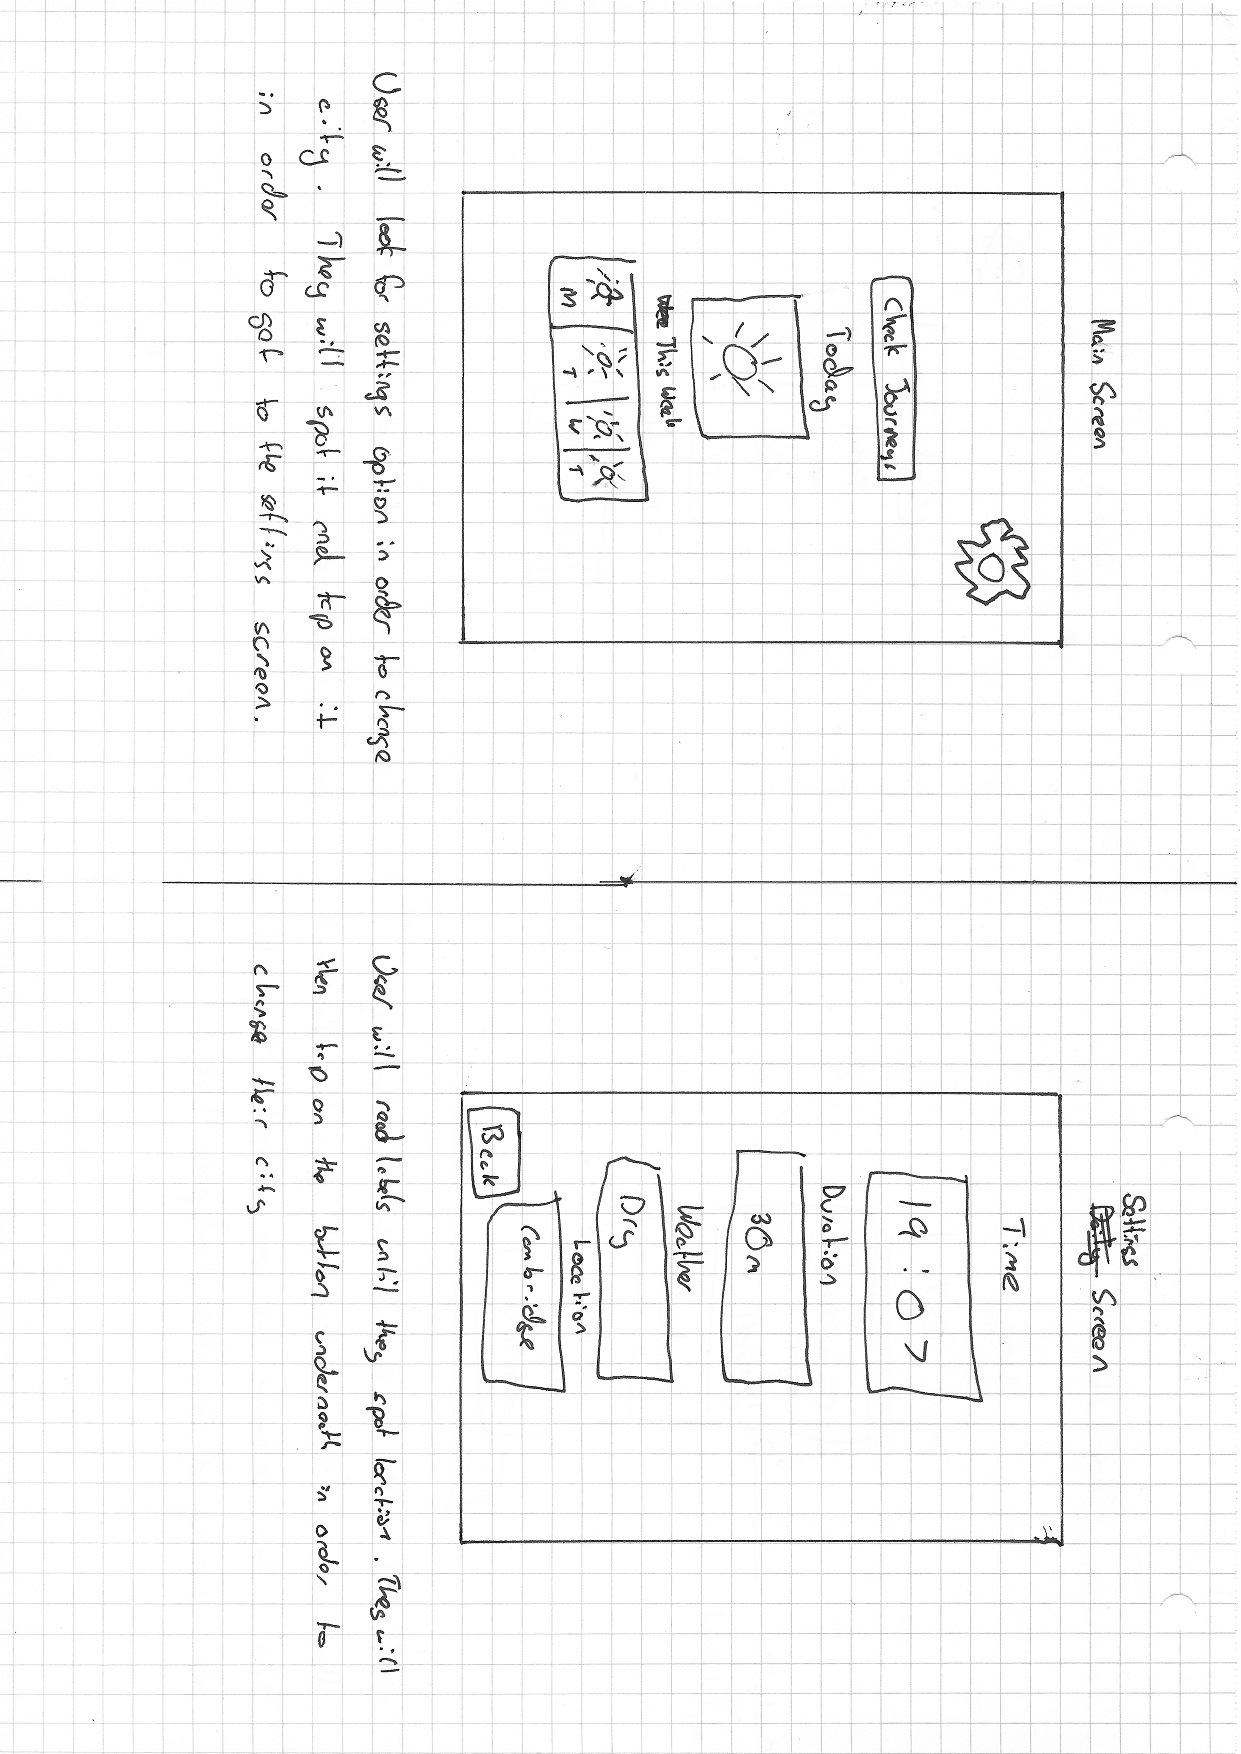 Main Screen
Check Journeys
Today
This Week
M T W T
User will look for settings option in order to change
city. They will spot it and tap on it
in order to got to the settings screen.
Settings
Screen
Time
19:07
Duration
30m
Weather
Dry
Location
Cambridge
Back
User will read labels until they spot location. They will
then tap on the button underneath in order to
change their city